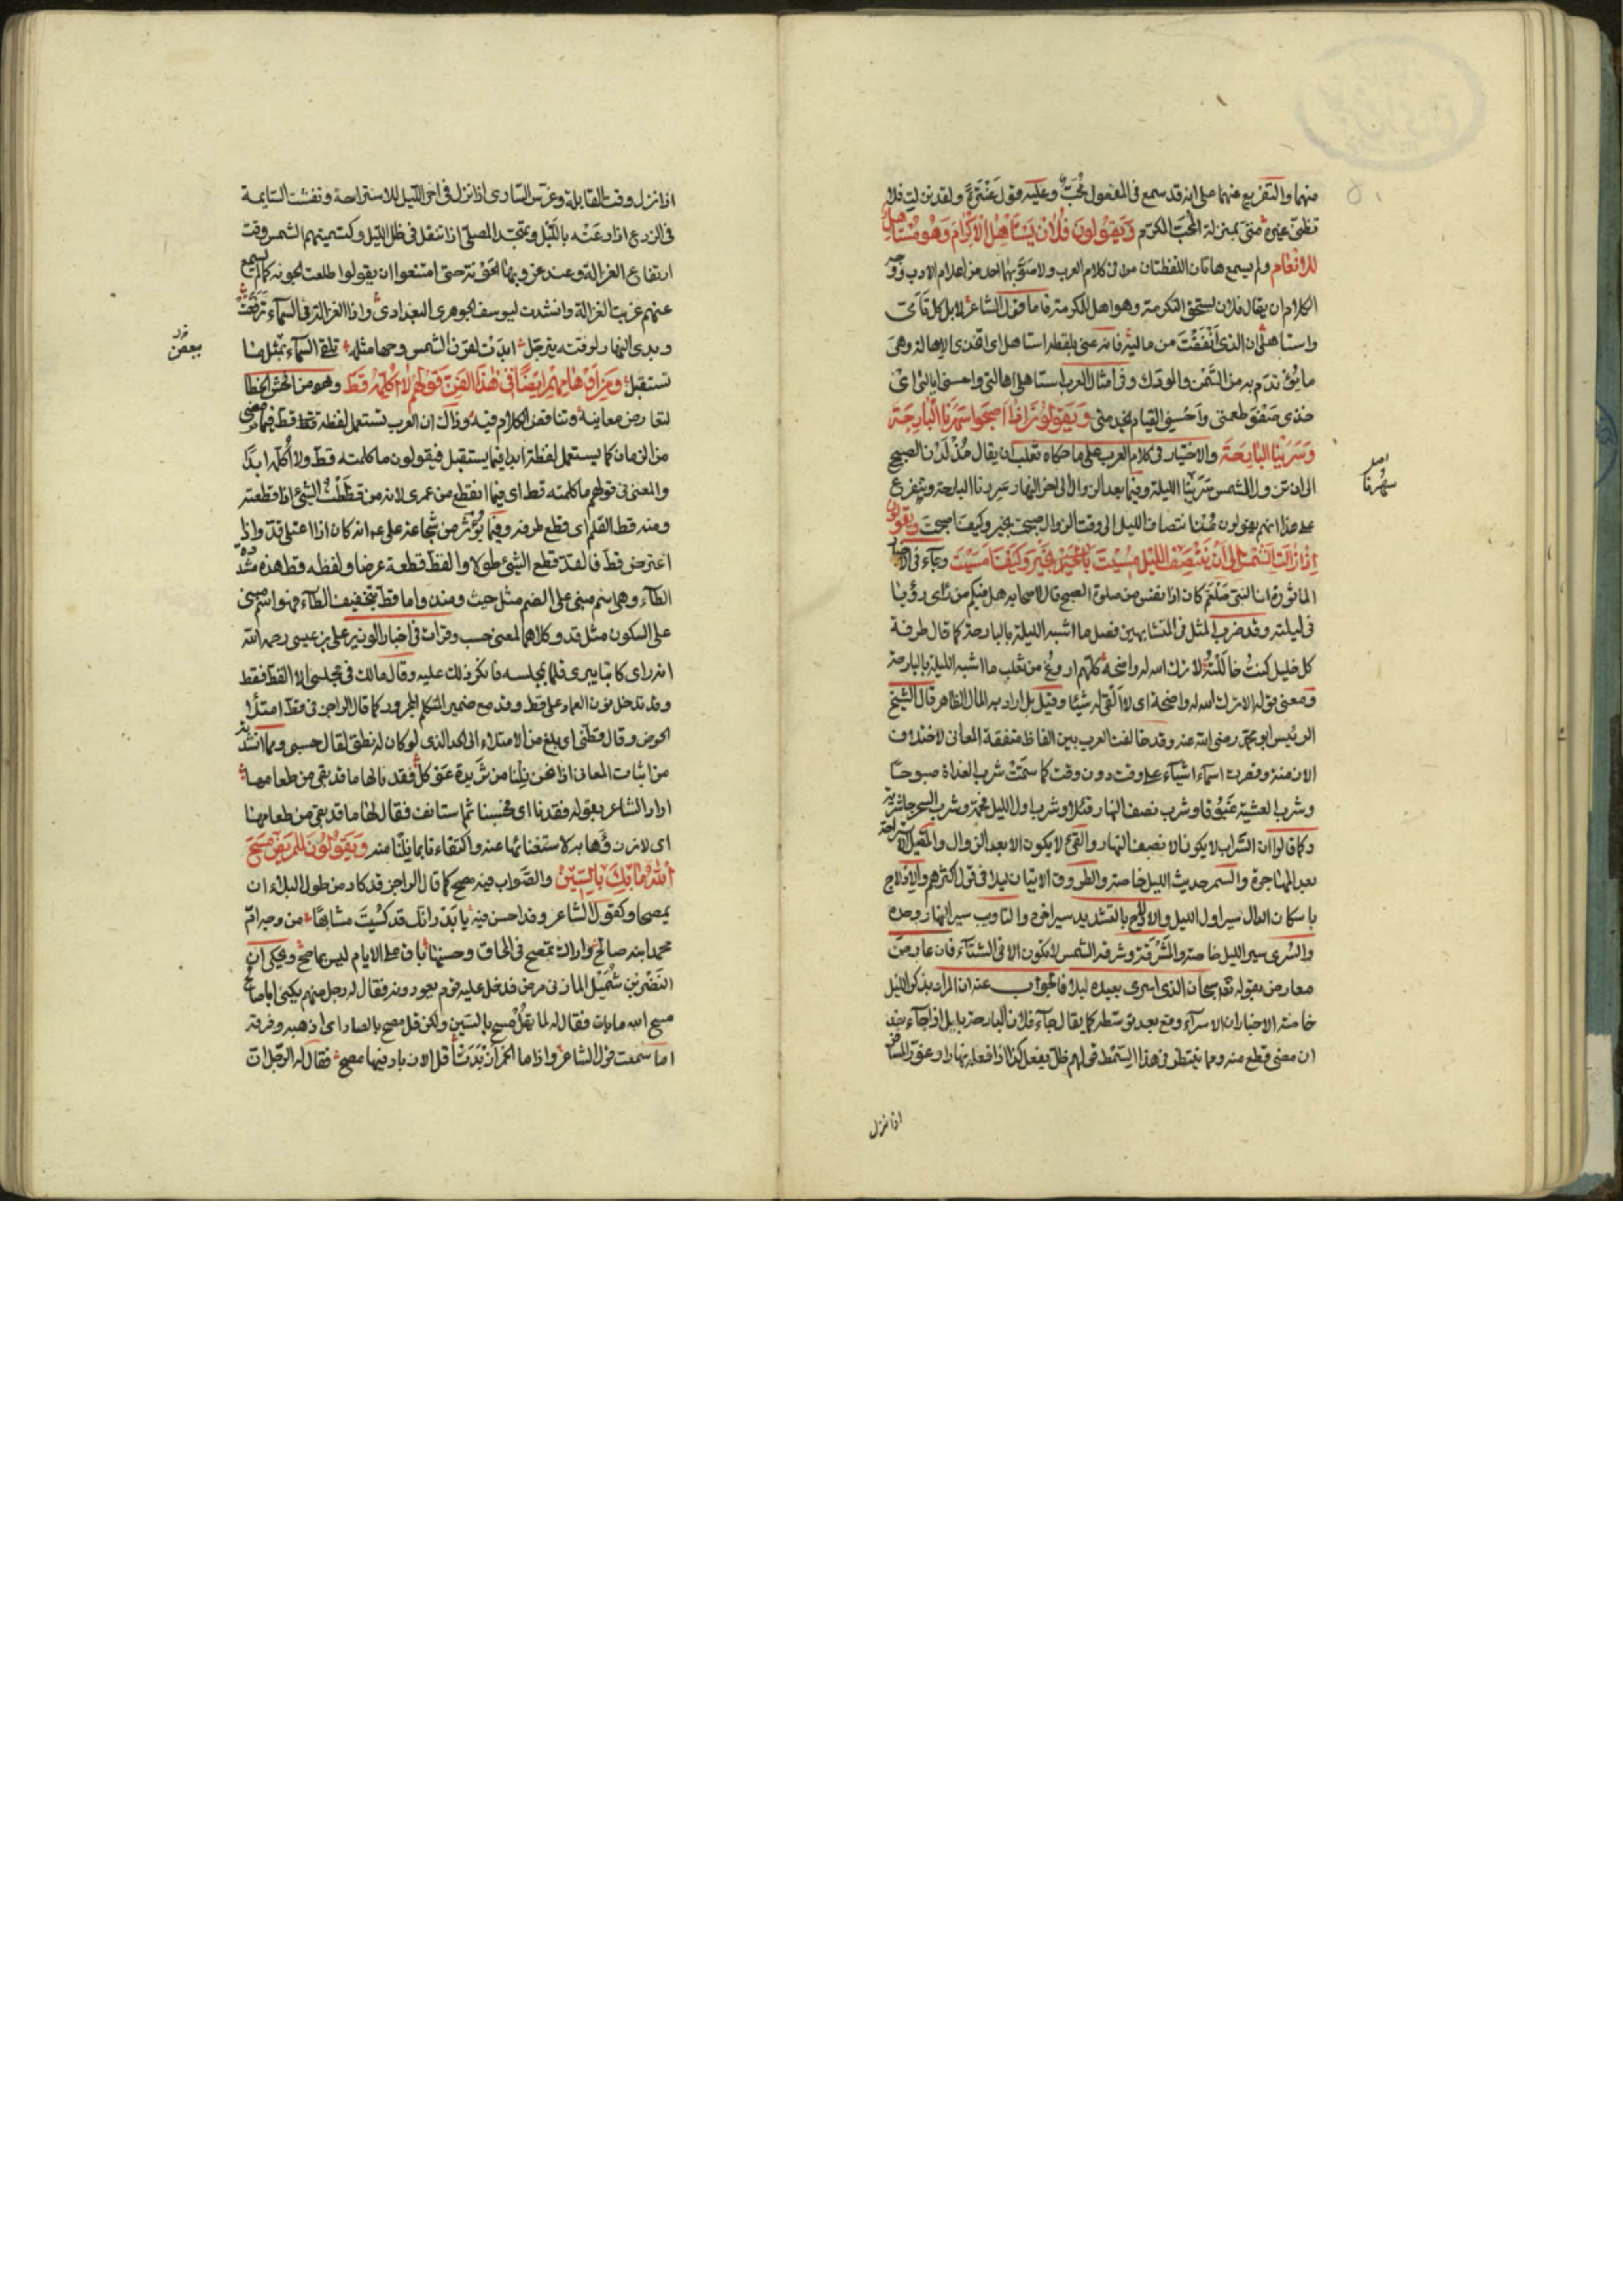 منهما والتفريع عنهما على انه قد سمع في المفعول مُحَبّ وعليه قول عَنْتَرة ولقد نزلت فلا
تظنّى غيره منّى بمنزلة المُحَبّ المكرم وَيَقُولونَ فُلَانٌ يَسْتَأهِلُ الاكْرَامَ وَهُوَ مُسْتَاهِلٌ
للانْعَام ولم يسمع هاتان اللفظتان في كلام العرب ولا صوّبهما احد من اعلام الادب ووجه
الكلام ان يقال فلان يستحق التكرمة وهو اهل للكرمة فاما قول الشاعر لا بل كلى يا مىّ
واستاهلى ان الذى انْفَقْتِ من ماليه فانه عنى بلفظة استاهلى اى اتخذى الاهالة وهى
ما يؤتدم به من السّمْن والودك وفى امثال العرب استاهلى اهالتى واحسنى ايالتى اىْ
خذى صفو طعمتى وأحْسِنى القيام بخدمتى وَيَقولُونَ اذا اَصْبَحوا سَهِرْنَا الْبَارِحَةَ
وَسَرَيْنَا البَارِحَةَ والاختيار فى كلام العرب على ما حكاه ثعلب ان يقال مُذْ لَدُن الصبح
الى ان تزول الشمس سَرَيْنا الليلة وفيما بعد الزوال الى اخر النهار سَرِينا البارحة ويتفرع
على هذا انهم يقولون مُنْذ انتصاف الليل الى وقت الزوال صبحت بخير وكيف اصبحت ويقولون
اِذا زَالَتِ الشَّمْسُ اِلى اَنْ يَنْتَصِفَ اللَّيْلُ مُسِّيتَ بخَيْر وَكَيْفَ اَمْسَيْتَ وجآء فى الاخبار
الماثورة ان النبى صَلْعَم كان اذا انفتل من صلوة الصبح قال لاصحابه هل فيكم من رأى رؤيا
فى ليلته وقد ضرب المثل فى المتشابهين فقيل ما اشبه الليلة بالبارحة كما قال طرفة
كل خليل كنتُ خالَلْتُهُ لا ترك اسه له واضحة كلهم اروغ من ثعلب ما اشبه الليلة بالبارحة
ومعنى قوله لا ترك اسه له واضحة اى لا ابقى له شيئا وقيل بل اراد به المال الظاهر قال الشيخ
الرئيس ابو محمد رضى الله عنه وقد خالفت العرب بين الفاظ متفقة المعانى لاختلاف
الازمنة وقصرت اسمآء اشيآء على وقت دون وقت كما سمّتْ شرب الغداة صبوحًا
وشرب العشية غَبُوقًا وشرب نصف النهار قَيْلا وشرب اول الليل فحمة وشرب السحر جاشرية
وكما قالوا ان السَّراب لا يكون الا نصف النهار والفَىْء لا يكون الا بعد الزوال والمقيل الاستراحة
بعد الهاجرة والسمر حديث الليل خاصة والطروق الاتيان ليلا فى قول اكثرهم والادلاج
باسكان الدال سير اول الليل والادّلاج بالتشديد سير اخره والتاويب سير النهار وحده
والسُرى سير الليل خاصة والمَشْرُقة وشرقة الشمس لا تكون الا فى الشتآء فان عارض
معارض بقوله تعالى سبحان الذى اسرى بعبده ليلا فالجواب عنه ان المراد بذكر الليل
خاصة الاخبار ان الاسرآء وقع بعد توسّطه كما يقال جآء فلان البارحة بليل اذا جآء بعد
ان مضى قطع منه ومما ينتظم فى هذا السّمط قولهم ظلّ يفعل كذا اذا فعله نهارا وغوّر المسافر
اصل
سَهِرْنا
اذا نزل
اذا نزل وقت القايلة وعرّس السّارى اذا نزل فى اخر الليل للاستراحة ونفشت السّايمة
فى الزرع اذا رعَتْه بالليْل وتهجّد المصلّى اذا تنفل فى ظل الليل وكتسميتهم الشمس وقت
ارتفاع الغزالة وعند غروبها الجَوْنة حتى امتنعوا ان يقولوا طلعت الجونة كما لم يسمع
عنهم غربت الغزالة وانشدت ليوسف الجوهرى البغدادى واذا الغزالة فى السمآء تَرَفّعَتْ
وبدى النهار لوقته يترجّل ابدَتْ لقرن الشمس وجها مثله تلقى السمآء بمثل ما
تستقبل وَمِن اَوْهَامِهِم ايضًا فى هٰذَا الفَنّ قَوْلُهُمْ لَا اُكَلِّمُهُ قَطّ وهو من افحش الخطا
لتعارض معانيه وتناقض الكلام فيه وذاك ان العرب تستعمل لفظة قط فيما مضى
من الزمان كما يستعمل لفظة ابدا فيما يستقبل فيقولون ما كلمته قطّ ولا اُكلّمه ابدًا
والمعنى فى قولهم ما كلمته قط اى فيما انقطع من عمرى لانه من قَطَطْت الشئ اذا قطعته
ومنه قط القلم اى قطع طرفه وفيما يُؤْثَر من شجاعة على ع انه كان اذا اعتلى قدّ واذا
اعترض قطّ فالقدّ قطع الشئ طولا والقطّ قطعه عرضا ولفظه قط هذه مشدّدة
الطآء وهى اسم مبنى على الضم مثل حيث ومنذ واما قط بتخفيف الطآء فهو اسم مبنى
على السكون مثل قد وكلاهما لمعنى حسب وقرات فى اخبار الوزير على بن عيسى رحمه الله
انه راى كاتبا يبرى قلما بمجلسه فانكر ذلك عليه وقال مالك فى مجلسى الا القطّ فقط
وقد تدخل نون العماد على قط وقد مع ضمير المتكلم المجرور كما قال الراجز فى قط امتلأ
الحوض وقال قطنى اى بلغ من الامتلاء الى الحد الذى لو كان له نطق لقال حسبى ومما انشد
من ابيات المعانى اذا نحن نِلْنا من ثريدة عَوْكل فقدنا لها ما قد بقى من طعامها
اراد الشاعر بقوله فقدنا اى فحسبنا ثم استانف فقال لها ما قد بقى من طعامها
اى لا نرزؤها به لاستغنائنا عنه واكتفاءنا بما نِلْنا منه وَيَقولُونَ للْمَريضِ مَسَحَ
اللهُ مَا بِكَ بِالسّيْنِ والصَّواب فيه مصح كما قال الراجز قد كاد من طول البلاء ان
يمصحا وكقول الشاعر وقد احسن فيه يا بَدْر انّك قد كُسِيتَ مشابهًا من وجه امّ
محمد ابنة صالح واراك تمصح فى المحاق وحسنها باق على الايام ليس بماصح ويحكى ان
النَّضْر بن شُمَيْل المازنى مرض فدخل عليه قوم يعودونه فقال له رجل منهم يكنى ابا صالح
مسح الله ما بك فقال له لا تقل مسح بالسّين ولكن قل مصح بالصاد اى اذهبه وفرقه
اما سمعت قول الشاعر واذا ما الخمر ازبَدَتْ افل الازباد فيها ومصح فقال له الرّجل ان
بعض